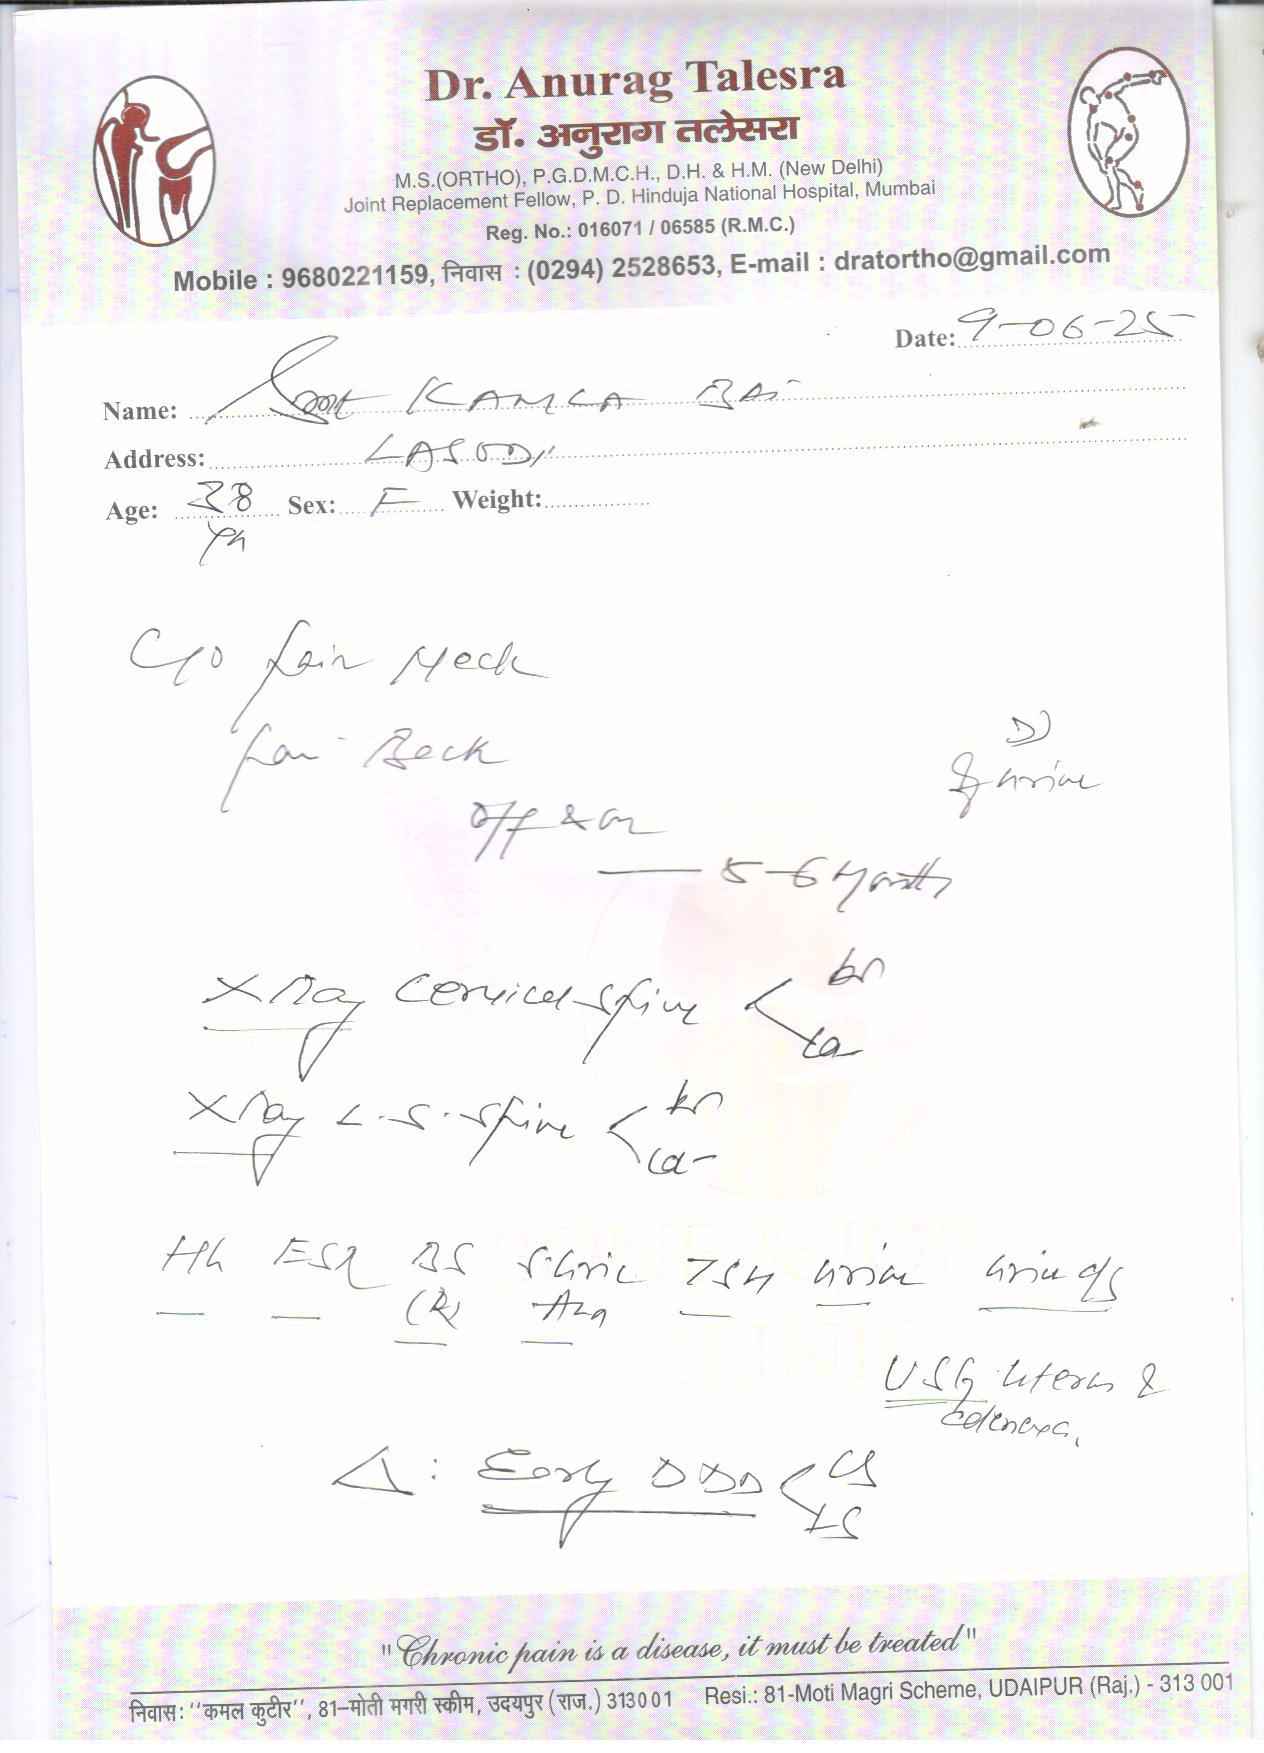 Dr. Anurag Talesra
डॉ. अनुराग तलेसरा
M.S.(ORTHO), P.G.D.M.C.H., D.H. & H.M. (New Delhi)
Joint Replacement Fellow, P. D. Hinduja National Hospital, Mumbai
Reg. No.: 016071 / 06585 (R.M.C.)
Mobile : 9680221159, निवास : (0294) 2528653, E-mail : dratortho@gmail.com
Date: 9-06-25
Name: Smt KAMLA BAI
Address: LASODI
Age: 38 Sex: F Weight:
Yrs
C/O Pain Neck
Pain Back
off & on
5-6 Months
urine
X Ray Cervical Spine < AP
Lat
X Ray L.S. Spine < AP
Lat
Hb ESR BS S.Uric TSH urine
(R) Acid
USG Uterus &
adenexa
Δ: Early DDD < CS
LS
BONE & JOIN
CLINIC
"Chronic pain is a disease, it must be treated"
निवास: ''कमल कुटीर'', 81–मोती मगरी स्कीम, उदयपुर (राज.) 313001 Resi.: 81-Moti Magri Scheme, UDAIPUR (Raj.) - 313 001